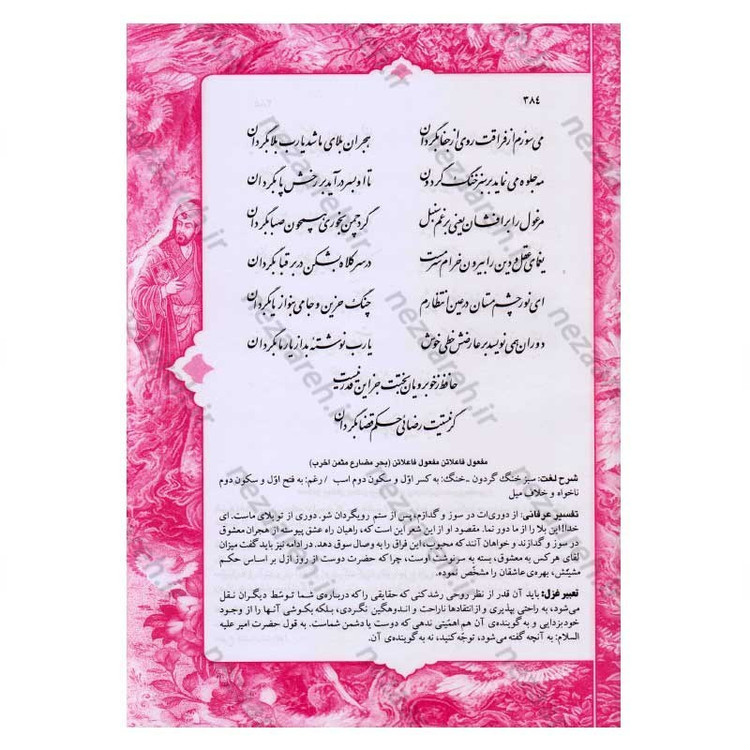 ۳۸٤
می‌سوزم از فراقت روی از جفا بگردان
هجران بلای ما شد یارب بلا بگردان
مه جلوه می‌نماید بر سبز خنگ گردون
تا او بسر درآید بر رخش پا بگردان
مرغول را برافشان یعنی برغم سنبل
گرد چمن بخوری همچون صبا بگردان
یغمای عقل و دین را بیرون خرام سرمست
در سر کلاه بشکن در بر قبا بگردان
ای نور چشم مستان در عین انتظارم
چنگ حزین و جامی بنواز یا بگردان
دوران همی نویسد بر عارضش خطی خوش
یارب نوشتهٔ بد از یار ما بگردان
حافظ ز خوبرویان بختت جز این قدر نیست
گر نیستت رضائی حکم قضا بگردان
مفعول فاعلاتن مفعول فاعلاتن (بحر مضارع مثمن اخرب)
شرح لغت: سبز خنگ گردون -خنگ: به کسر اوّل و سکون دوم اسب / رغم: به فتح اوّل و سکون دوم
ناخواه و خلاف میل
تفسیر عرفانی: از دوری‌ات در سوز و گدازم، پس از ستم رویگردان شو. دوری از تو بلای ماست. ای
خدا! این بلا را از ما دور نما. مقصود او از این شعر این است که، راهیان راه عشق پیوسته از هجران معشوق
در سوز و گدازند و خواهان آنند که محبوب، این فراق را به وصال سوق دهد. در ادامه نیز باید گفت میزان
لقای هر کس به معشوق، بسته به سرنوشت اوست، چرا که حضرت دوست از روز ازل بر اساس حکم
مشیّتش، بهره‌ی عاشقان را مشخّص نموده.
تعبیر غزل: باید آن قدر از نظر روحی رشد کنی که حقایقی را که درباره‌ی شما توسّط دیگران نقل
می‌شود، به راحتی بپذیری و از انتقادها ناراحت و اندوهگین نگردی، بلکه بکوشی آنها را از وجود
خود بزدایی و به گوینده‌ی آن هم اهمّیتی ندهی که دوست یا دشمن شماست. به قول حضرت امیر علیه
السلام: به آنچه گفته می‌شود، توجّه کنید، نه به گوینده‌ی آن.
nezaareh.ir